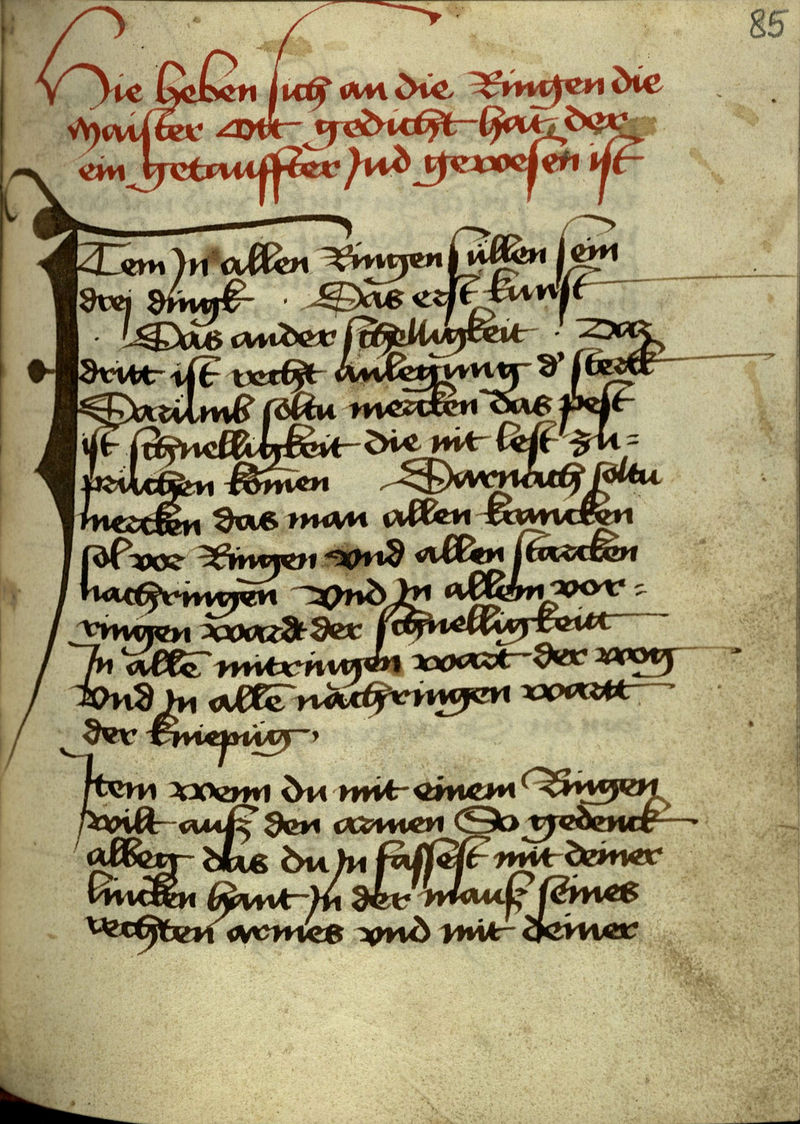 85
Hie heben sich an die Ringen die
Maister Ott gedicht hat, der
ein getauffter Jud gewesen ist
ITem Jn allen Ringen süllen sein
dreÿ dingk · Das erst kunst
· Das ander schelligkeit · Daz
dritt ist recht anlegung d' sterck
Darumb soltu mercken das pest
ist schnelligkeit die nit lest zu=
pruchen komen Darnach soltu
mercken das man allen krancken
sol vor Ringen vnd allen starcken
nachringen Vnd Jn allem vor=
ringen wardt der schnelligkeitt
Jn allē mitringen wart der wog
Vnd Jn allē nachringen wartt
der kniepüg,
Jtem wenn du mit einem Ringen
wilt auß den armen So gedenck
albeg das du Jn fassest mit deiner
lincken hant Jn der mauß seines
rechten armes vnd mit deiner